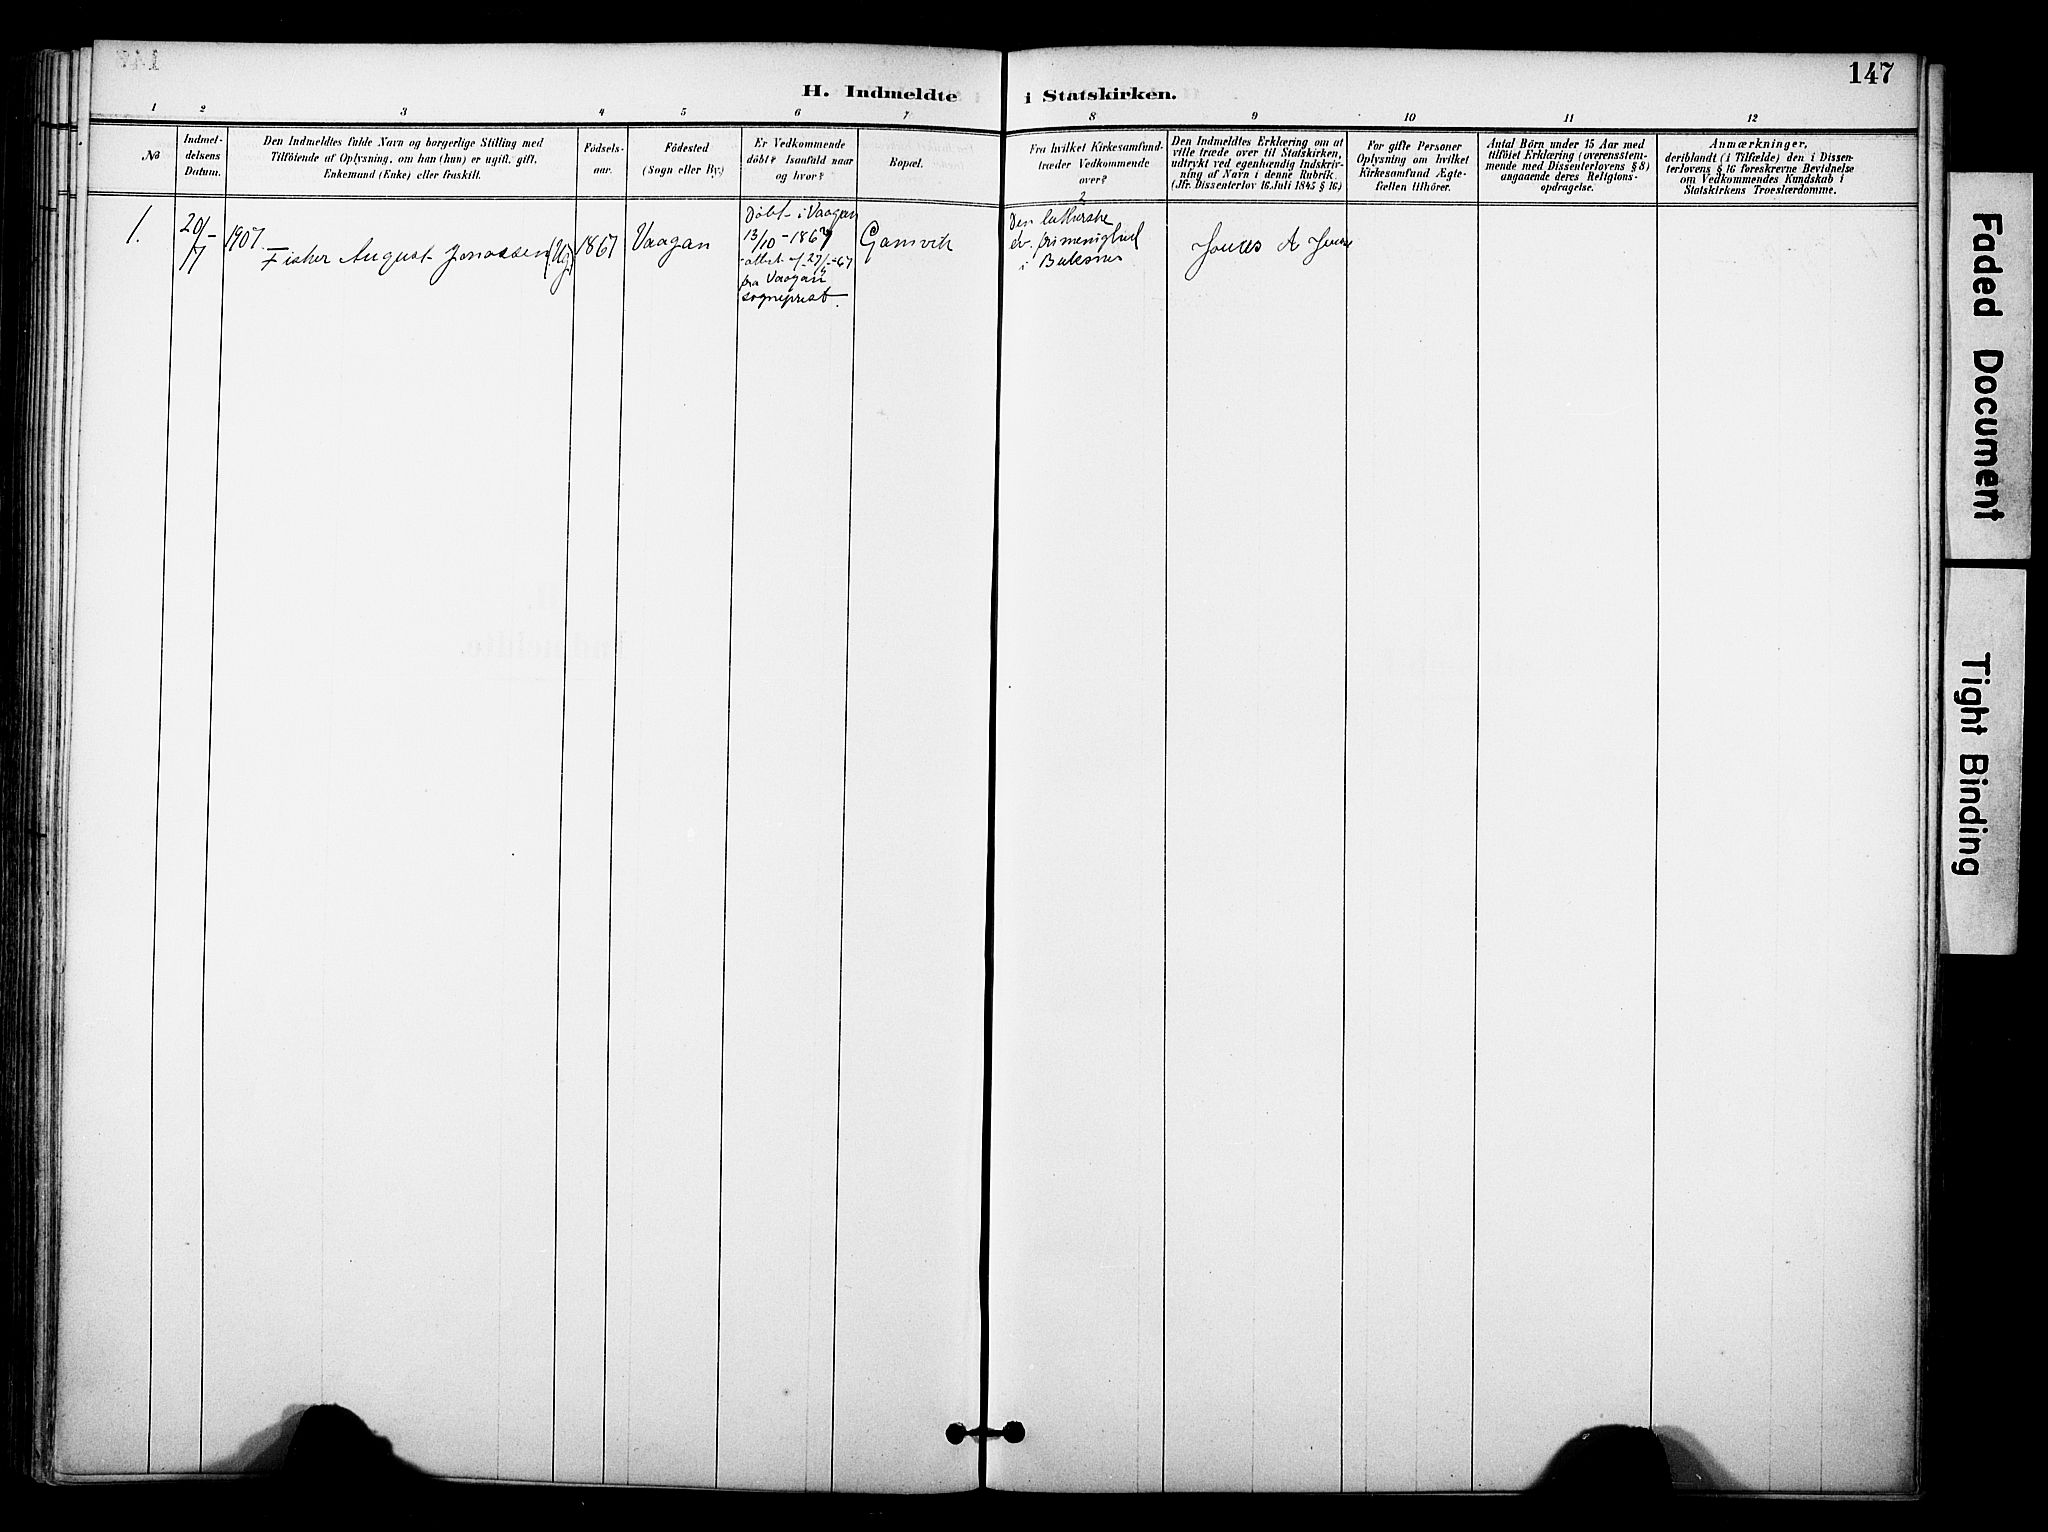 147
H. Indmeldte i Statskirken.
1 2 3 4 5 6 7 8 9 10 11 12
No
Indmel-
delsens
Datum.
Den Indmeldtes fulde Navn og borgerlige Stilling med
Tilföiende af Oplysning, om han (hun) er ugift, gift,
Enkemand (Enke) eller fraskilt.
Födsels-
aar.
Födested
(Sogn eller By.)
Er Vedkommende
döbt? Isaafald naar
og hvor?
Bopæl.
Fra hvilket Kirkesamfund
træder Vedkommende
over?
Den Indmeldtes Erklæring om at
ville træde over til Statskirken,
udtrykt ved egenhændig Indskriv-
ning af Navn i denne Rubrik.
(Jfr. Dissenterlov 16. Juli 1845 § 16)
For gifte Personer
Oplysning om hvilket
Kirkesamfund Ægte-
fællen tilhörer.
Antal Börn under 15 Aar med
tilföiet Erklæring (overensstem-
mende med Dissenterlovens § 8)
angaaende deres Religions-
opdragelse.
Anmærkninger,
deriblandt (i Tilfælde) den i Dissen-
terlovens § 16 foreskrevne Bevidnelse
om Vedkommendes Kundskab i
Statskirkens Troeslærdomme.
1.
20/7 - 1907.
Fisker August Jonassen (Ug)
1867
Vaagan
Döbt i Vaagan
13/10 - 1867
fra Vaagan
sogneprest.
Gamvik
Den lutherske
ev. frimenighed
i Buksnes
A
Faded Document
Tight Binding